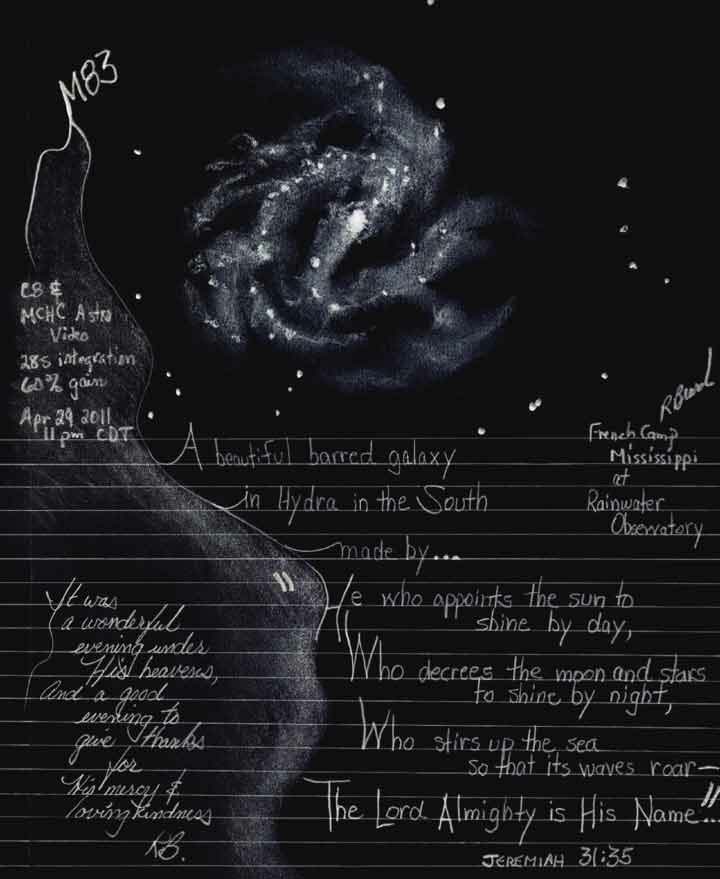 M83
C8 &
MCHC Astro
Video
28s integration
60% gain
Apr 29 2011
11pm CDT
French Camp
Mississippi
at
Rainwater
Observatory
A beautiful barred galaxy
in Hydra in the South
made by...
"He who appoints the sun to
shine by day,
Who decrees the moon and stars
to shine by night,
Who stirs up the sea
so that its waves roar—
The Lord Almighty is His Name"...
JEREMIAH 31:35
It was
a wonderful
evening under
His heavens,
And a good
evening to
give thanks
for
His mercy &
loving kindness